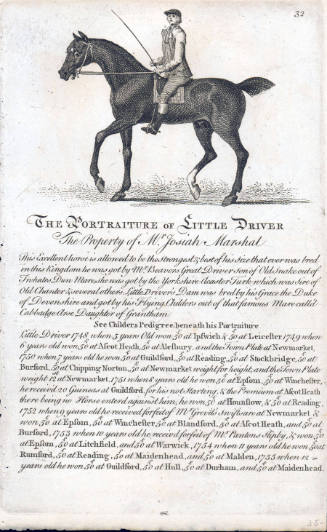 32
THE PORTRAITURE OF LITTLE DRIVER
The Property of Mr. Josiah Marshal
This Excellent horse is allowed to be the strongest & best of his size that ever was bred
in this Kingdom he was got by Mr. Beavers Great Driver son of Old Snake out of
Dun Mare she was got by the Yorkshire Hautboy Turk which was Sire of
Old Chanter & several others Little Drivers Dam was bred by his Grace the Duke
of Devonshire and got by his Flying Childers out of that famous Mare called
Cabbalge Arse Daughter of Grantham
See Childers Pedigree beneath his Portraiture
Little Driver 1748 when 5 years Old won 50 at Ipswich & 50 at Leicester 1749 when
6 years old won 50 at Ascot Heath, 50 at Melburn, and the Town Plate at Newmarket,
1750 when 7 years old he won 50 at Guildford, 50 at Reading, 50 at Stockbridge, 50 at
Burford, 50 at Chipping Norton, 50 at Newmarket weight for height, and the Town Plate
weight 12 at Newmarket, 1751 when 8 years old he won 50 at Epsom, 50 at Winchester,
he received 20 Guineas at Guildford, for his not starting, & the Premium at Ascot Heath
there being no Horse enterd against him, he also won 50 at Hounslow, & 50 at Reading
1752 when 9 years old he received forfeit of Mr. Grevills at Newmarket &
won 50 at Epsom, 50 at Winchester, 50 at Blandford, 50 at Ascot Heath, and 50 at
Burford, 1753 when 10 years old he receivd forfeit of Mr. Pantons & won 50
at Epsom, 50 at Litchfield, and 50 at Warwick, 1754 when 11 years old he won 50 at
Rumford, 50 at Reading, 50 at Maidenhead, and 50 at Malden, 1755 when 12
years old he won 50 at Guildford, 50 at Hull, 50 at Durham, and 50 at Maidenhead